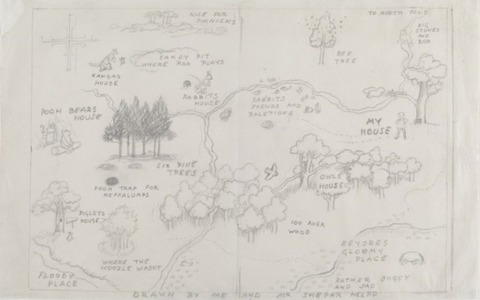 NICE FOR
PICNICKS
TO NORTH POLE
BIG
STONES
AND
ROX
BEE
TREE
SANDY PIT
WHERE ROO PLAYS
KANGAS
HOUSE
RABBITS
HOUSE
RABBITS
FRENDS AND
RALETIONS
POOH BEARS
HOUSE
MY
HOUSE
SIX PINE
TREES
OWLS
HOUSE
POOH TRAP FOR
HEFFALUMPS
PIGLETS
HOUSE
100 AKER
WOOD
EEYORES
GLOOMY
PLACE
WHERE THE
WOOZLE WASNT
FLOODY
PLACE
RATHER BOGGY
AND SAD
DRAWN BY ME AND MR SHEPARD HELPD